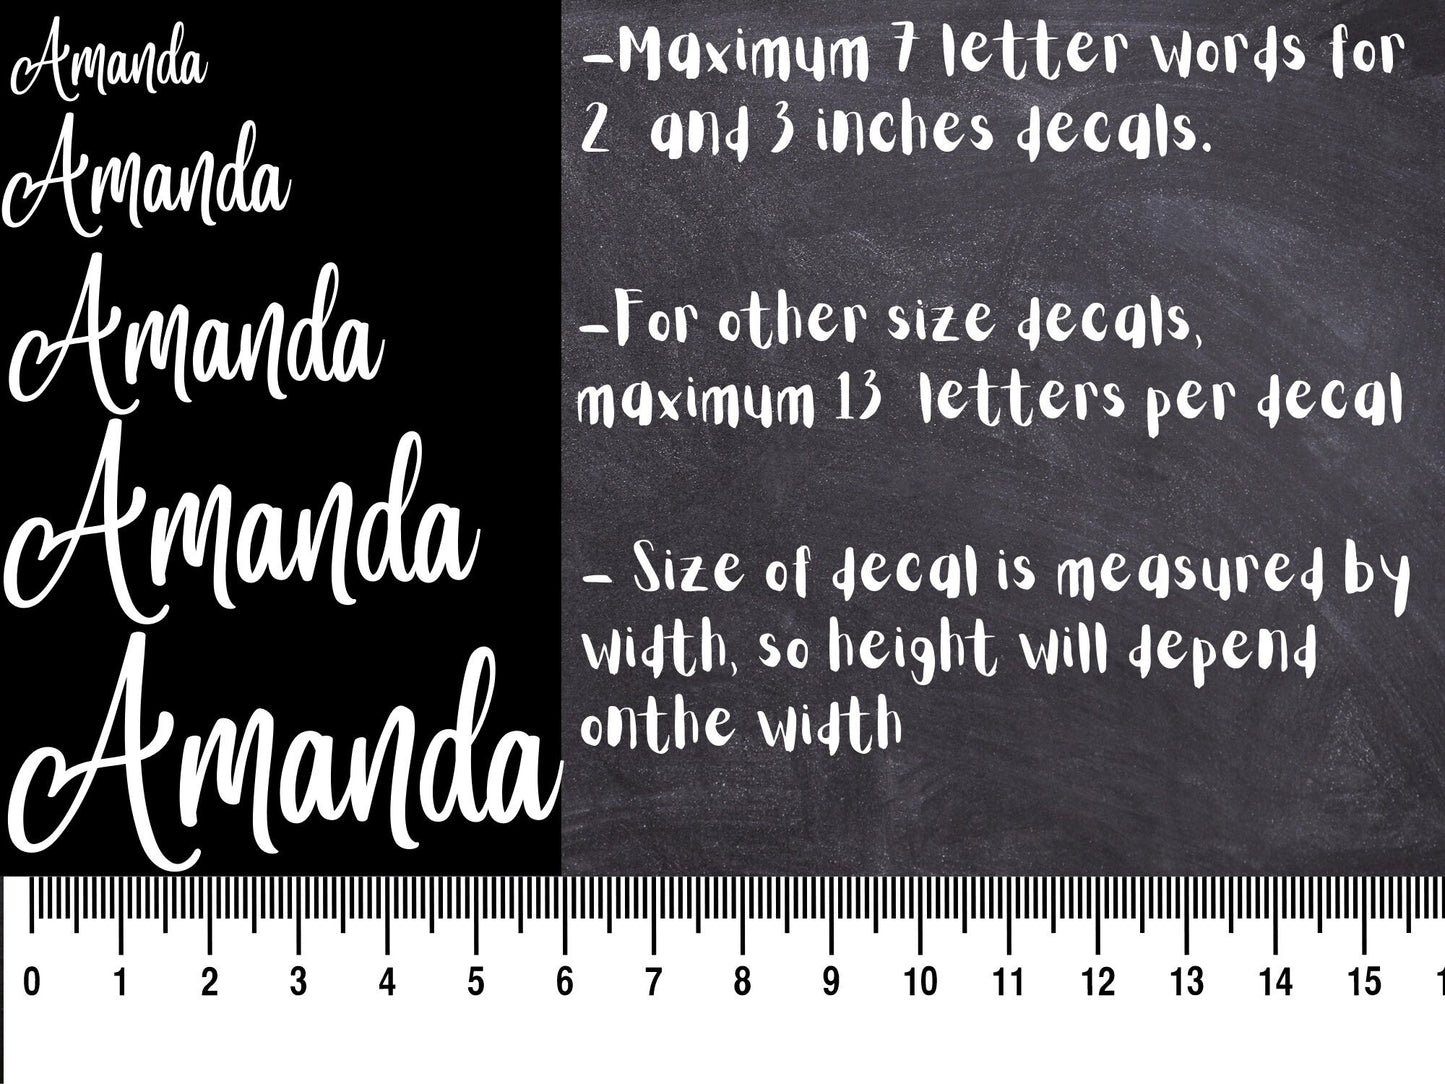 Amanda
Amanda
Amanda
Amanda
Amanda
-Maximum 7 letter words for
2 and 3 inches decals.
-For other size decals,
maximum 13 letters per decal
- Size of decal is measured by
width, so height will depend
onthe width
0 1 2 3 4 5 6 7 8 9 10 11 12 13 14 15